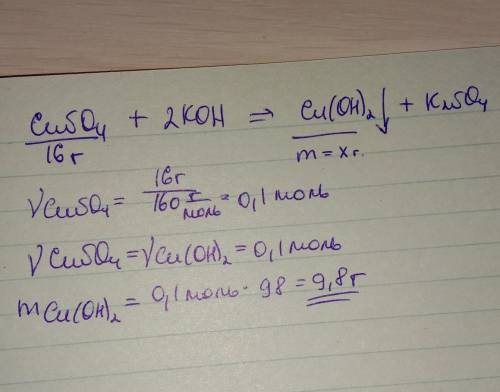 CuSO₄ + 2KOH ⇒ Cu(OH)₂↓ + K₂SO₄
16г m = xг.
νCuSO₄ = 16г / 160 г/моль = 0,1 моль
νCuSO₄ = νCu(OH)₂ = 0,1 моль
mCu(OH)₂ = 0,1 моль · 98 = 9,8г